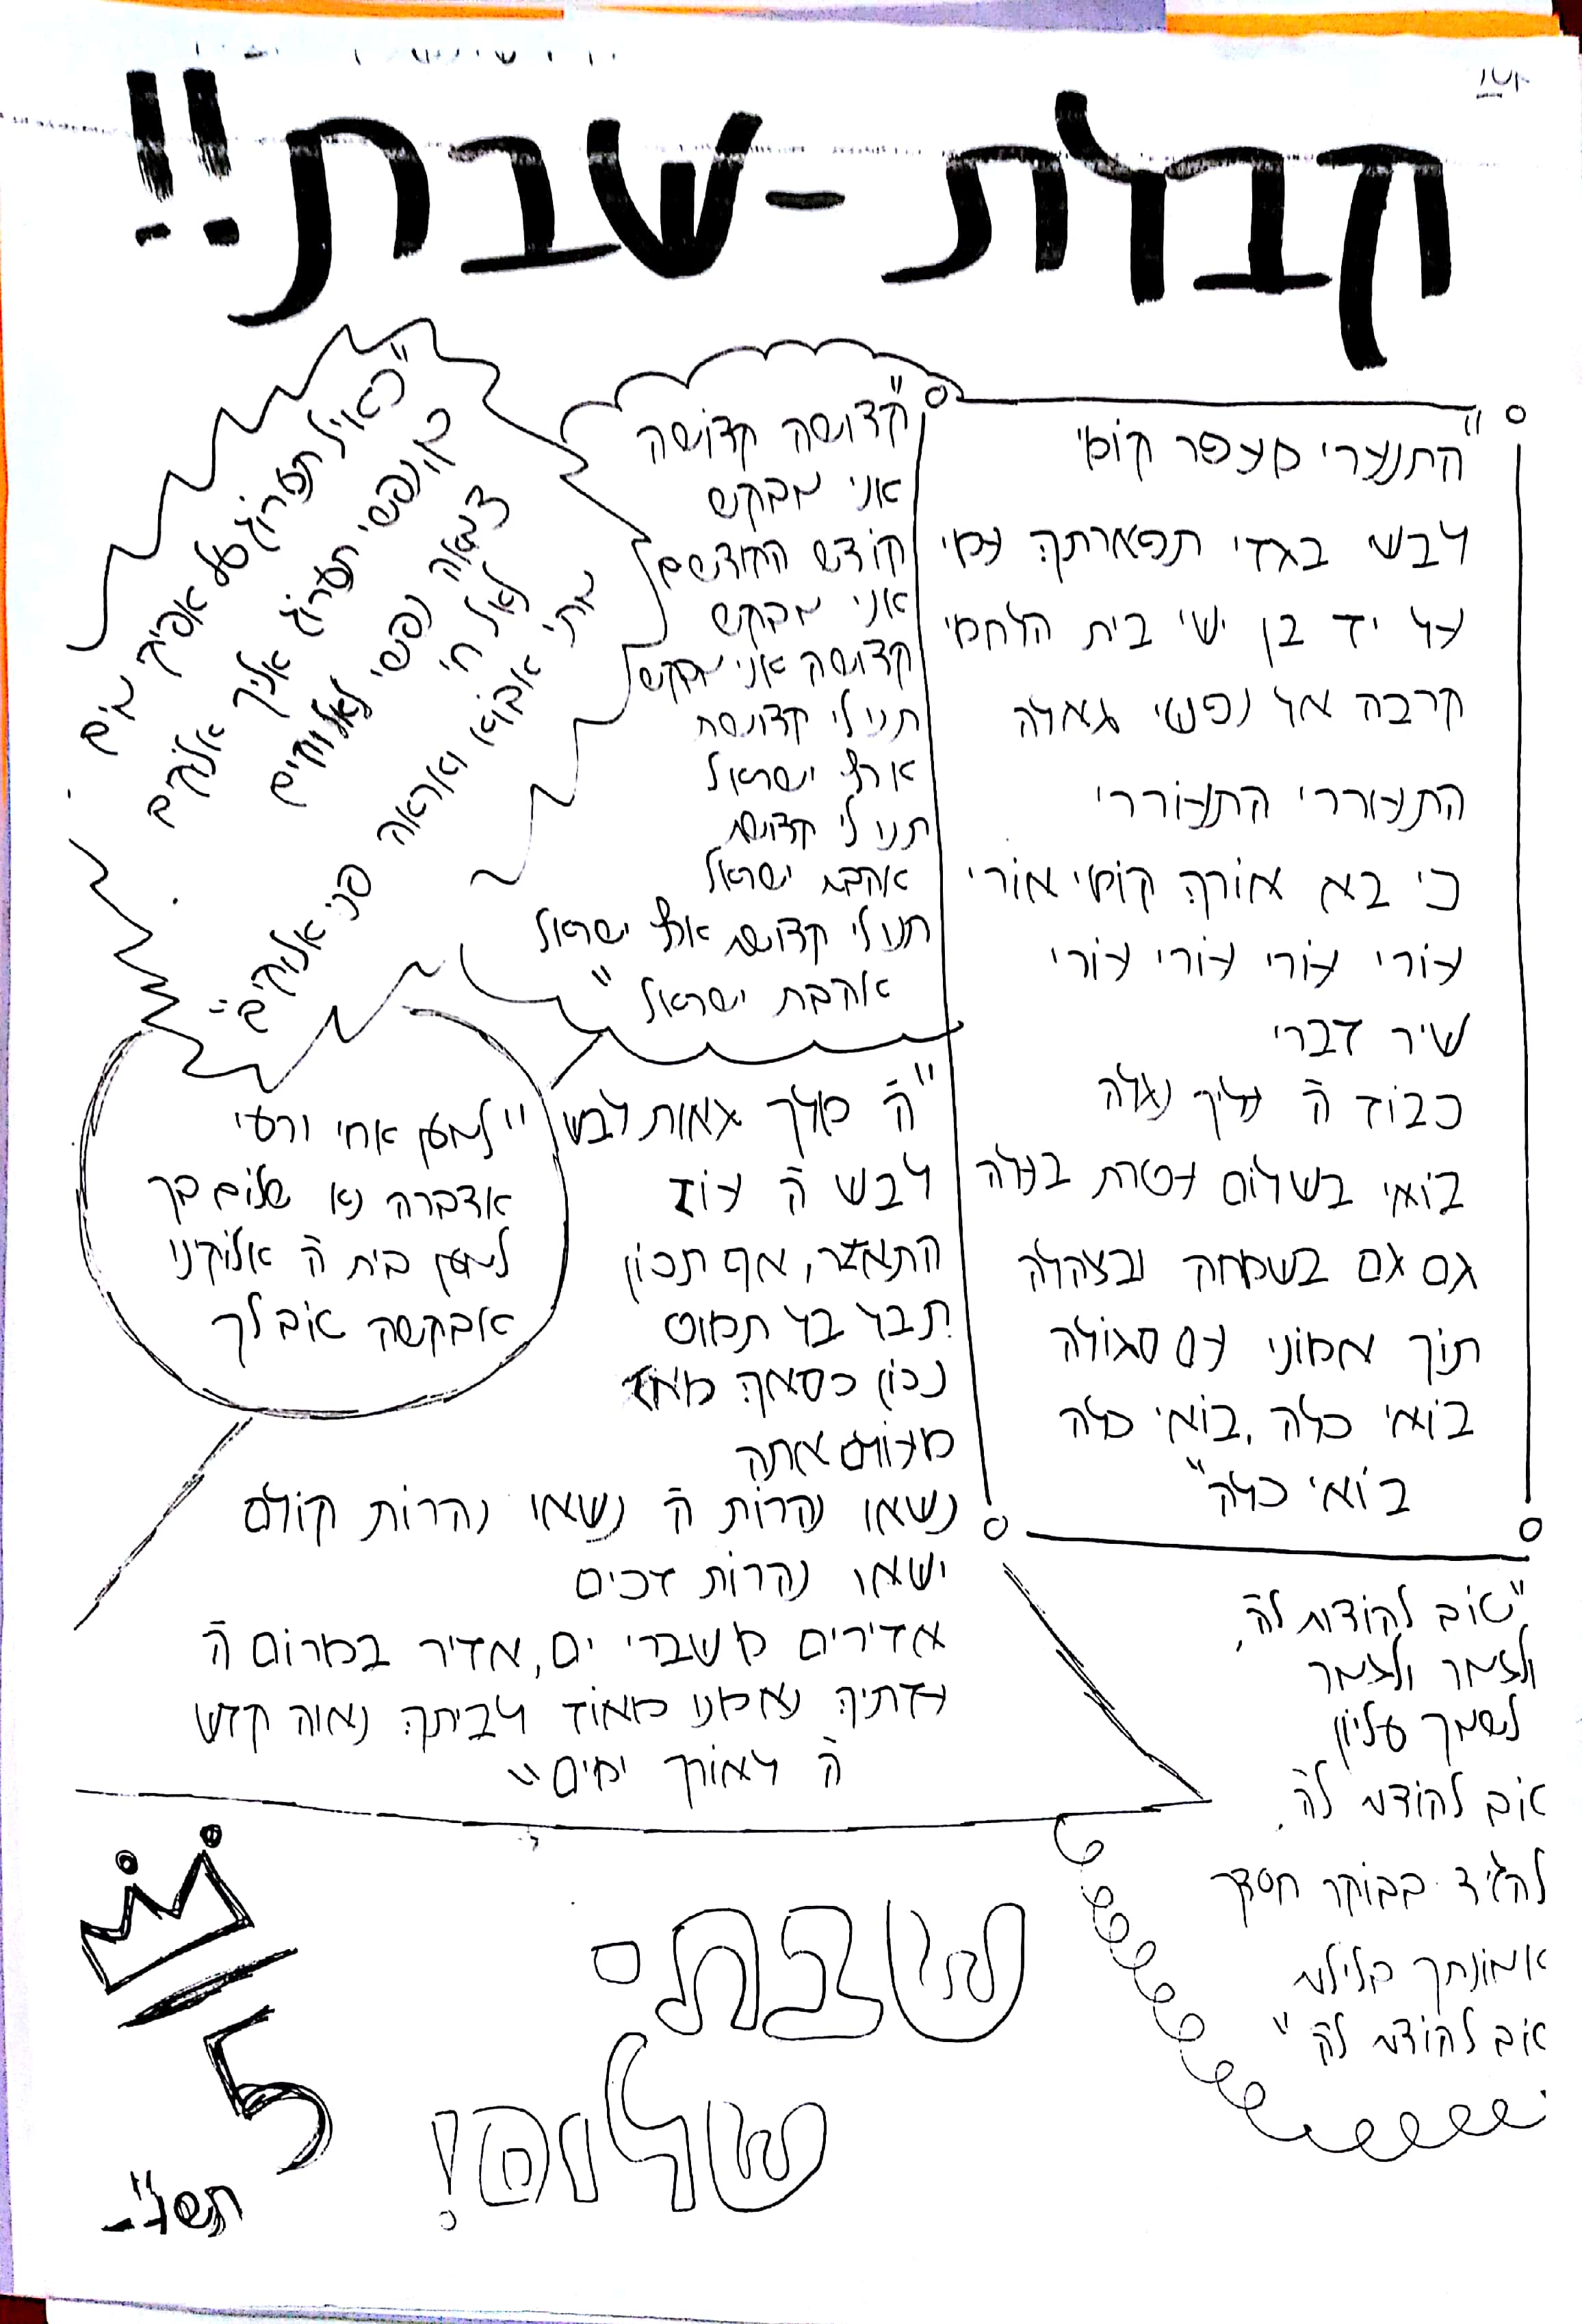 קבלת-שבת!!
"התנערי מעפר קומי
לבשי בגדי תפארתך עמי
על יד בן ישי בית הלחמי
קרבה אל נפשי גאלה
התעוררי התעוררי
כי בא אורך קומי אורי
עורי עורי עורי עורי
שיר דברי
כבוד ה' עליך נגלה
בואי בשלום עטרת בעלה
גם גם בשמחה ובצהלה
תוך אמוני עם סגולה
בואי כלה, בואי כלה
בואי כלה"
"קדושה קדושה
אני מבקש
קודש הקודשים
אני מבקש
קדושה אני מבקש
תני לי קדושת
ארץ ישראל
תנו לי קדושת
אהבת ישראל
תנו לי קדושת ארץ ישראל
אהבת ישראל"
"כאייל תערוג על אפיקי מים
כן נפשי תערוג אליך אלוקים
צמאה נפשי לאלוקים
לאל חי
מתי אבוא ואראה פני אלוקים"
"ה' מלך גאות לבש
לבש ה' עוז
התאזר, אף תכון
תבל בל תמוט
נכון כסאך מאז
מעולם אתה
נשאו נהרות ה' נשאו נהרות קולם
ישאו נהרות דכים
אדירים משברי ים, אדיר במרום ה'
עדתיך נאמנו מאוד לביתך נאוה קדש
ה' לאורך ימים"
"למען אחי ורעי
אדברה נא שלום בך
למען בית ה' אלוקינו
אבקשה טוב לך
"טוב להודות לה',
ולזמר ולזמר
לשמך עליון
טוב להודות לה'.
להגיד בבוקר חסדך
אמונתך בלילות
טוב להודות לה'"
שבת-
שלום!
5